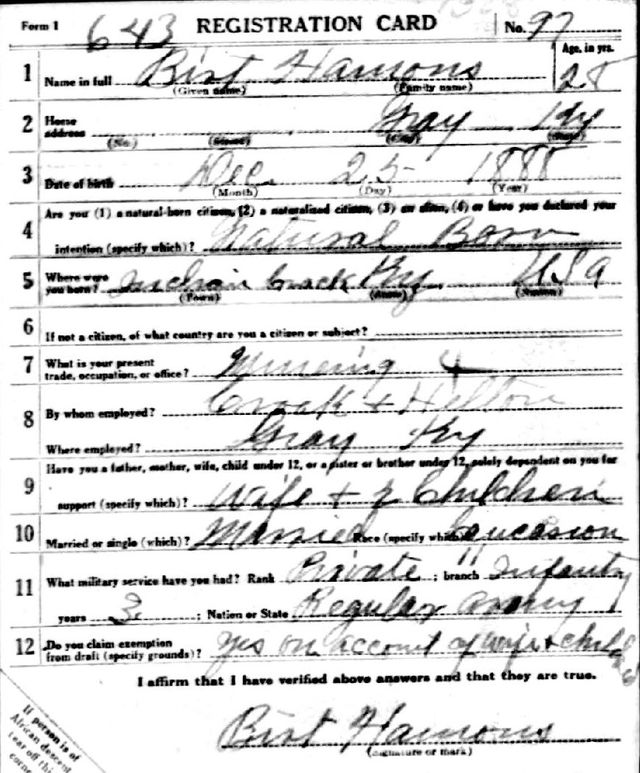 Form 1 643 REGISTRATION CARD No. 97
1 Name in full Birt Hamons Age, in yrs. 28
(Given name) (Family name)
2 Home address Gray Ky
(No.) (Street) (City) (State)
3 Date of birth Dec. 25 1888
(Month) (Day) (Year)
4 Are you (1) a natural-born citizen, (2) a naturalized citizen, (3) an alien, (4) or have you declared your
intention (specify which)? Natural Born
5 Where were you born? Ky USA
(Town) (State) (Nation)
6 If not a citizen, of what country are you a citizen or subject?
7 What is your present
trade, occupation, or office? 4
8 By whom employed? + Helton
Where employed? Gray Ky
9 Have you a father, mother, wife, child under 12, or a sister or brother under 12, solely dependent on you for
support (specify which)? Wife + Children
10 Married or single (which)? Married Race (specify which)? Caucasion
11 What military service have you had? Rank Private ; branch Infantry
years 3 ; Nation or State Regular Army
12 Do you claim exemption
from draft (specify grounds)? Yes on account of wife + child
I affirm that I have verified above answers and that they are true.
Birt Hamons
(Signature or mark)
If person is of
African descent
tear off this
corner